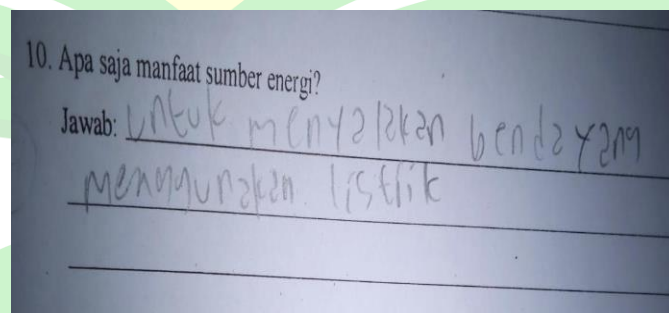 10. Apa saja manfaat sumber energi?
Jawab: Untuk menyalakan benda yang
menggunakan listrik